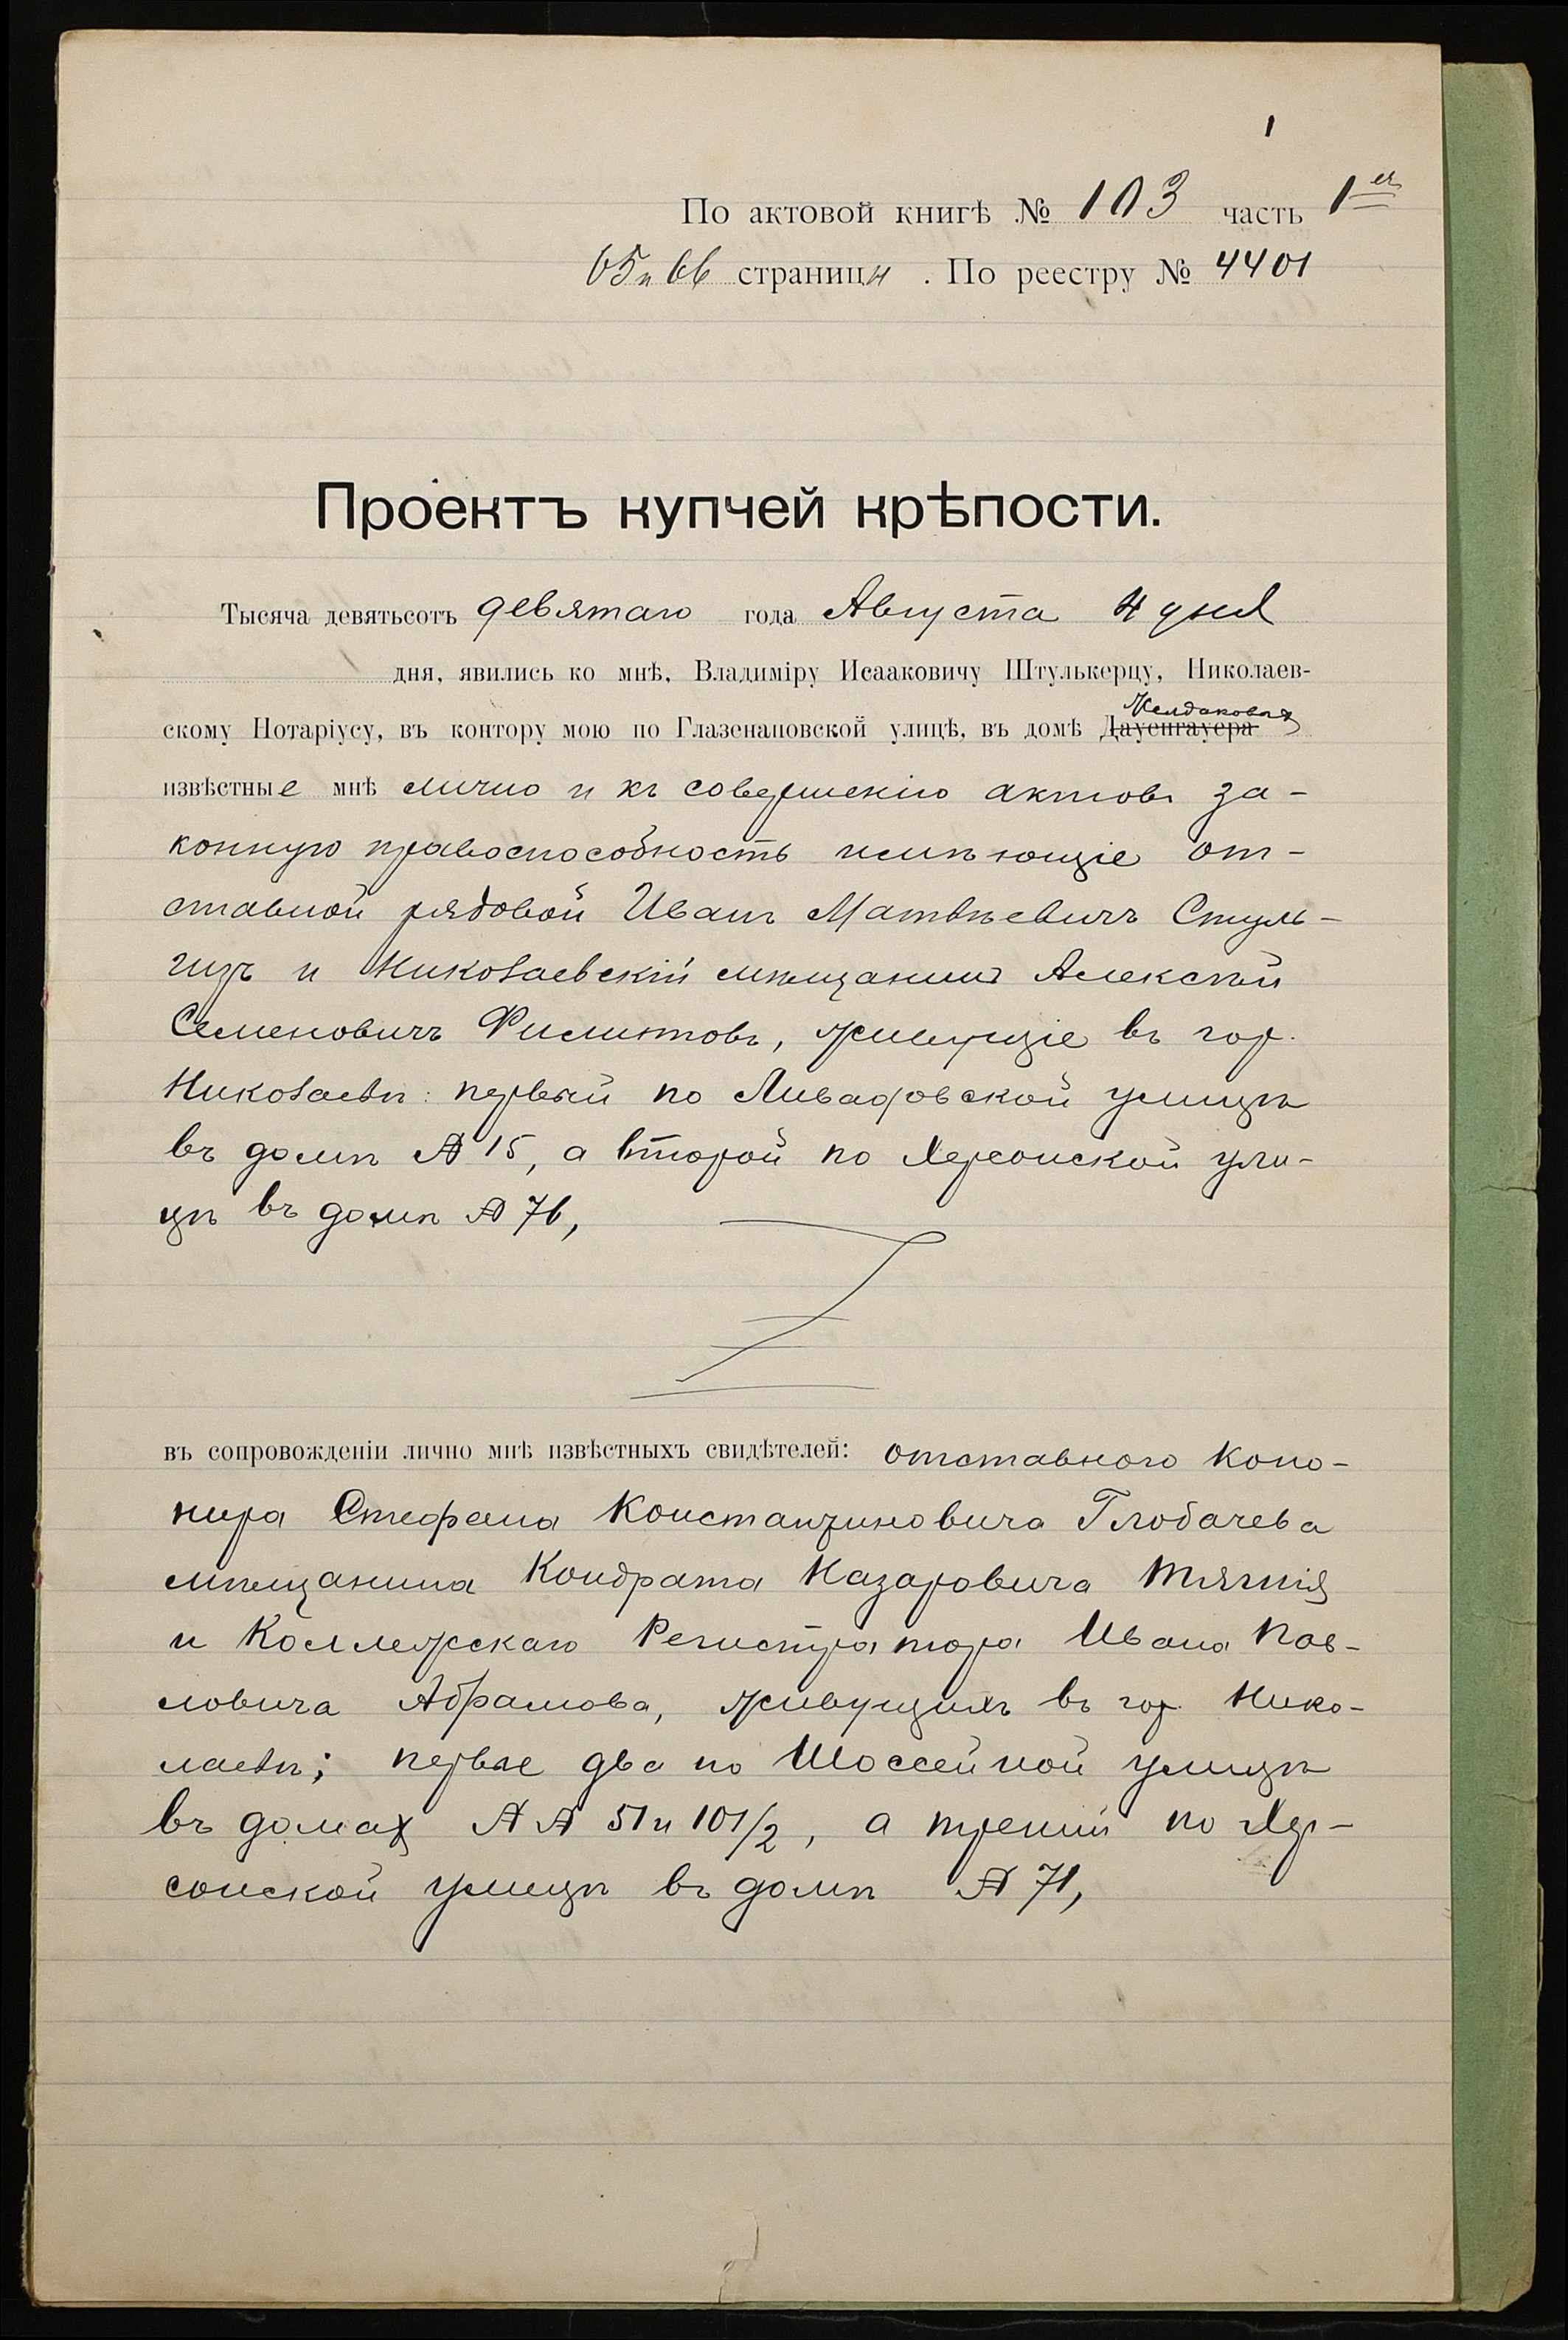 1
По актовой книгѣ № 103 часть 1ая
65 и 66 страницы . По реестру № 4401
Проектъ купчей крѣпости.
Тысяча девятьсотъ девятаго года Августа 4 дня
дня, явились ко мнѣ, Владиміру Исааковичу Штулькерцу, Николаев-
скому Нотаріусу, въ контору мою по Глазенаповской улицѣ, въ домѣ Дауенгауера
извѣстные мнѣ лично и къ совершенію актовъ за-
конную правоспособность имѣющіе от-
ставной рядовой Иванъ Матвѣевичъ Стуль-
гизъ и Николаевскій мѣщанинъ Алексѣй
Семеновичъ Филистовъ, живущіе въ гор.
Николаевѣ: первый по Ливадовской улицѣ
въ домѣ № 15, а второй по Херсонской ули-
цѣ въ домѣ № 76,
въ сопровожденіи лично мнѣ извѣстныхъ свидѣтелей: отставного коно-
нира Стефана Константиновича Глобачева
мѣщанина Кондрата Назаровича
и Коллежскаго Регистратора Ивана Пав-
ловича Абрамова, живущихъ въ гор. Нико-
лаевѣ; первые два по Шоссейной улицѣ
въ домах №№ 51 и 101/2, а третій по Хер-
сонской улицѣ въ домѣ № 71,